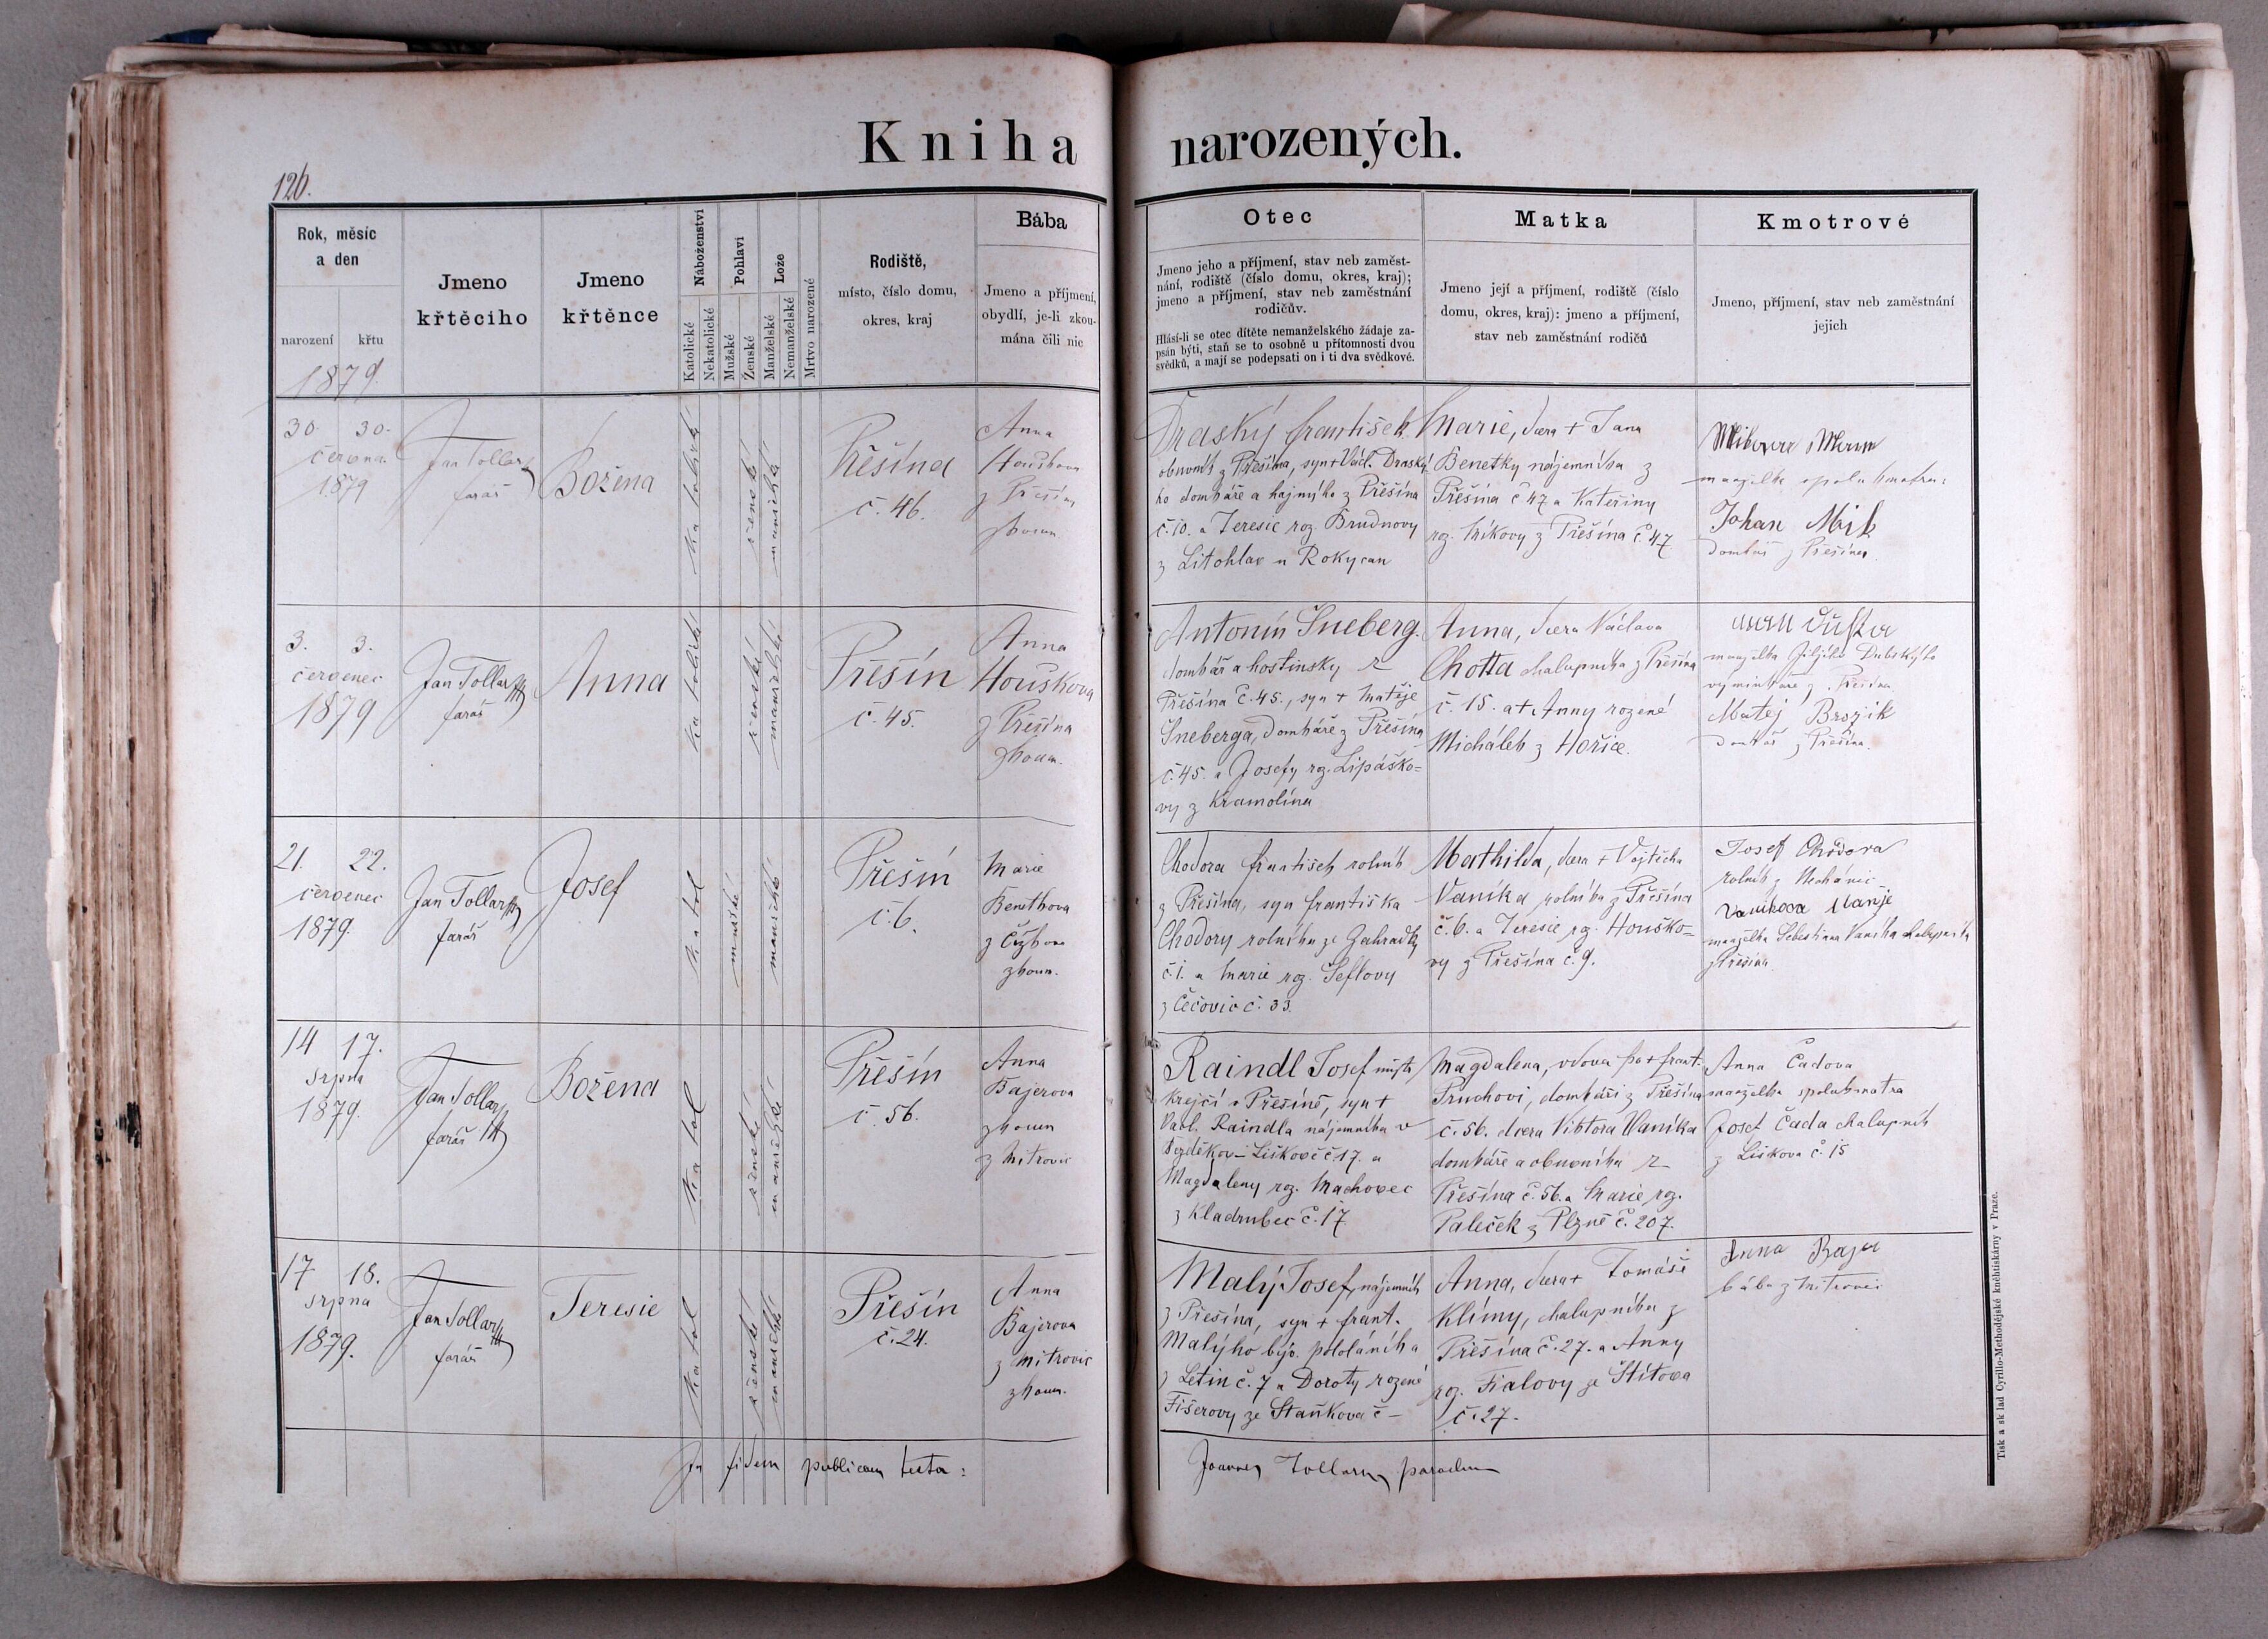 Kniha narozených.
126.
Rok, měsíc
a den
narození křtu
1879.
Jmeno
křtěcího
Jmeno
křtěnce
Náboženství
Katolické
Nekatolické
Pohlaví
Mužské
Ženské
Lože
Manželské
Nemanželské
Mrtvo narozené
Rodiště,
místo, číslo domu,
okres, kraj
Bába
Jmeno a příjmení,
obydlí, je-li zkou-
mána čili nic
Otec
Jmeno jeho a příjmení, stav neb zaměst-
nání, rodiště (číslo domu, okres, kraj);
jmeno a příjmení, stav neb zaměstnání
rodičův.
Hlásí-li se otec dítěte nemanželského žádaje za-
psán býti, staň se to osobně u přítomnosti dvou
svědků, a mají se podepsati on i ti dva svědkové.
Matka
Jmeno její a příjmení, rodiště (číslo
domu, okres, kraj): jmeno a příjmení,
stav neb zaměstnání rodičů
Kmotrové
Jmeno, příjmení, stav neb zaměstnání
jejich
30. 30.
června
1879
Jan Tollar
farář
Božena
ženské
manželské
Přešína
č. 46.
Anna
Houškova
z Přešína
zkoum.
Draský František
obuvník z Přešína, syn + Václ. Draský
ho domkáře a hajného z Přešína
č. 10. a Teresie roz. Brudnovy
z Litohlav u Rokycan
Marie, dcera + Jana
Benetky nájemníka z
Přešína č 47 a Kateřiny
z Přešína č. 47
manželka spolukmotra:
Johan Mik
domkář z Přešína
3. 3.
červenec
1879
Jan Tollar
farář
Anna
ženské
manželské
Přešín
č. 45.
Anna
Houškova
z Přešína
zkoum.
Antonín Šneberg.
domkář a hostinsky z
Přešína č. 45., syn + Matěje
Šneberga, domkáře z Přešína
č. 45. a Josefy rz. Lipáško-
vy z Kramolína
Anna, dcera Václava
Chotta chalupníka z Přešína
č. 15. a + Anny rozené
Michálek z Hořice.
manželka Jiljího Dubského
výminkáře z Přešína
Matej Brozik
domkář z Přešína.
21. 22.
červenec
1879.
Jan Tollar
farář
Josef
katol
mužské
manželské
Přešín
č. 6.
Marie
z Čížkova
zkoum.
Chodora František rolník
z Přešína, syn Františka
Chodory rolníka ze Zahrádky
č. 1. a Marie rz. Šeflovy
z Čečovic č. 33.
Mathilda, dcera + Vojtěcha
Vaníka rolníka z Přešína
č. 6. a Teresie rz. Houško-
vy z Přešína č. 9.
Josef Chodora
rolník z
Vanikova Marije
manželka Sebestiana Vaníka chalupníka
z Přešína
14 17.
srpna
1879.
Jan Tollar
farář
Božena
katol
ženské
manželské
Přešín
č. 56.
Anna
Bajerova
zkoum
z Mitrovic
Raindl Josef mistr
krejčí v Přešíně, syn +
Raindla nájemníka v
č 17. a
Magdaleny rz. Machovec
z Kladrubec č. 17
Magdalena, vdova po + Frant.
Pruchovi, domkáři z Přešína
č. 56. dcera Viktora Vaníka
domkáře a obuvníka z
Přešína č. 56. a Marie rz.
Paleček z Plzně č. 207.
Anna Čadova
manželka spolukmotra
Josef Čada chalupník
z Liškova č. 15
17 18.
srpna
1879.
Jan Tollar
farář
Teresie
katol
ženské
manželské
Přešín
č. 24.
Anna
Bajerova
z Mitrovic
zkoum.
Malý Josef, nájemník
z Přešína, syn + Frant.
Malýho býv. pololáníka
z Letin č. 7 a Doroty rozené
Fišerovy ze Staňkova č –
Anna, dcera + Tomáše
Klímy, chalupníka z
Přešína č. 27. a Anny
rz. Fialovy ze Štítova
č. 27.
Anna Bajer
bába z Mitrovic
In fidem publicam testa:
Joannes Tollar parochus
Tisk a sklad Cyrillo-Methodějské kněhtiskárny v Praze.